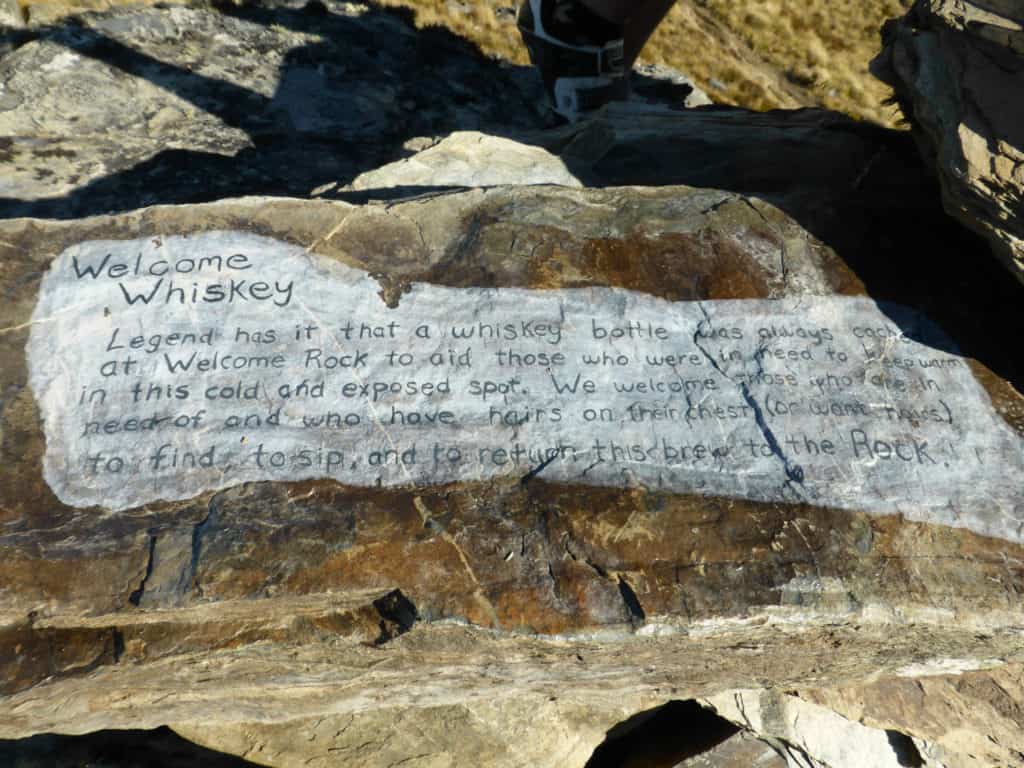 Welcome
Whiskey
Legend has it that a whiskey bottle was always cached
at Welcome Rock to aid those who were in need to keep warm
in this cold and exposed spot. We welcome those who are in
need of and who have hairs on their chest (or want hairs)
to find, to sip, and to return this brew to the Rock.